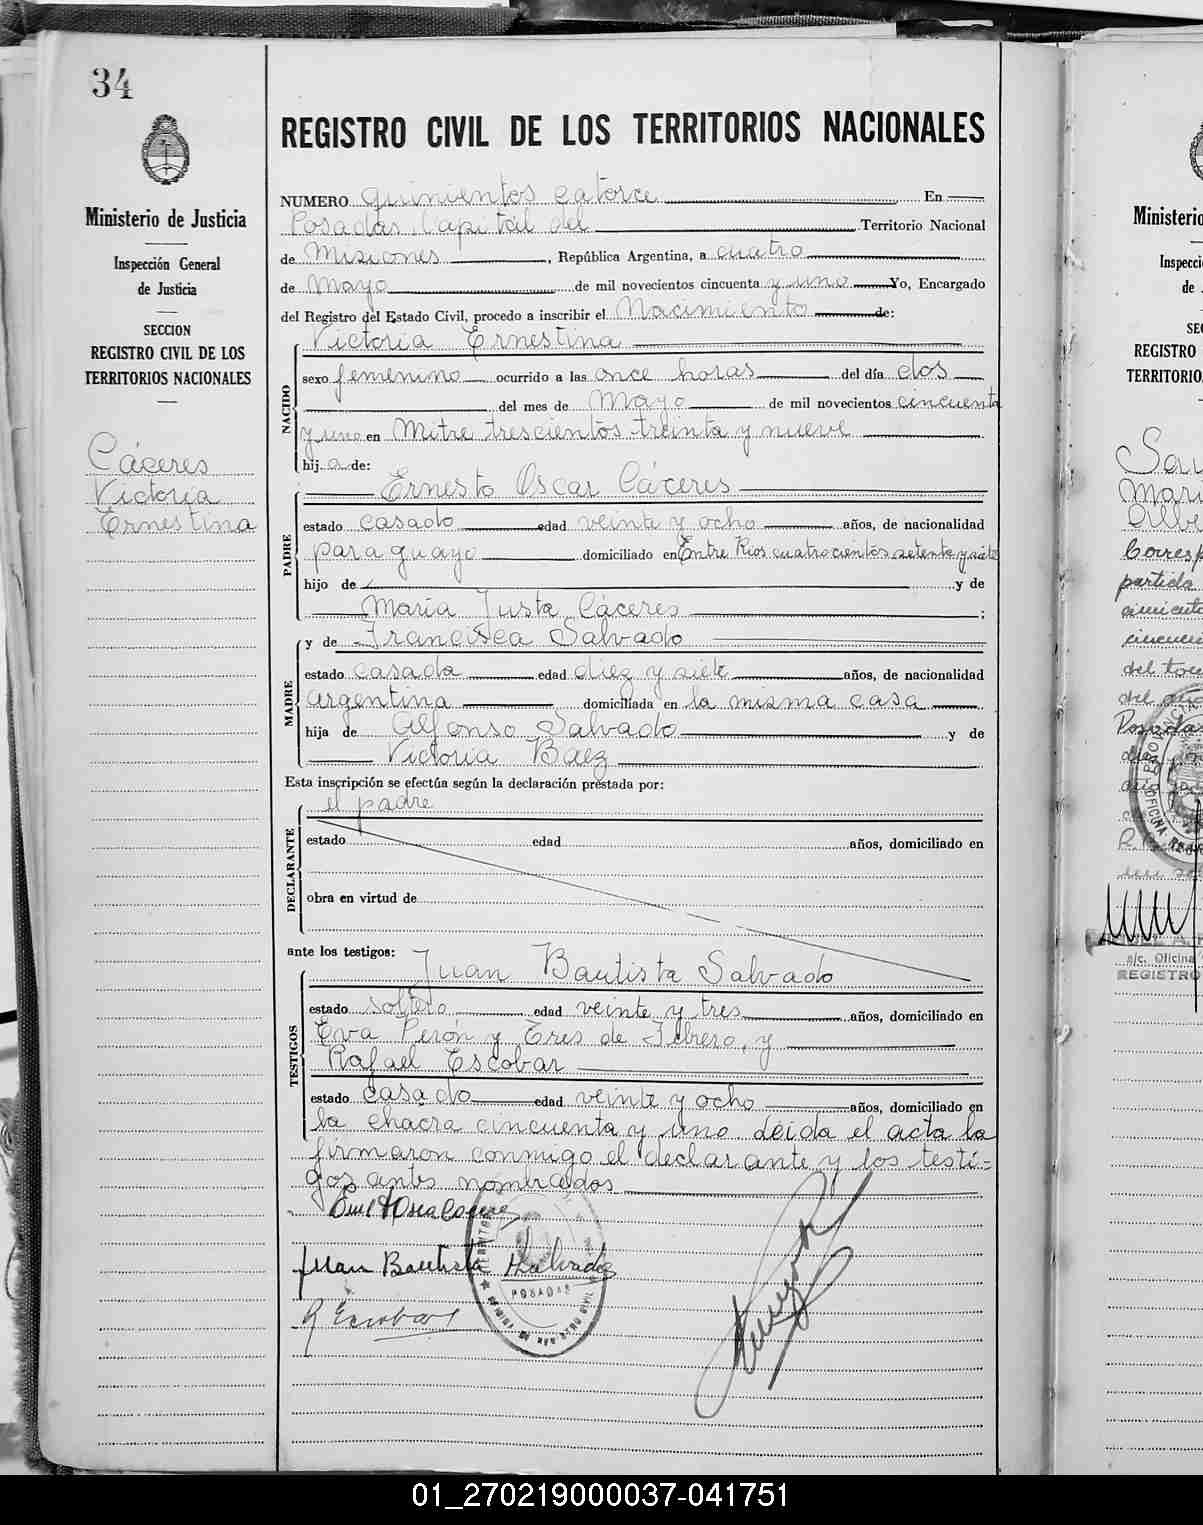 34
Ministerio de Justicia
Inspección General
de Justicia
SECCION
REGISTRO CIVIL DE LOS
TERRITORIOS NACIONALES
Cáceres
Victoria
Ernestina
REGISTRO CIVIL DE LOS TERRITORIOS NACIONALES
NUMERO quinientos catorce En
Posadas, Capital del Territorio Nacional
de Misiones, República Argentina, a cuatro
de Mayo de mil novecientos cincuenta y uno Yo, Encargado
del Registro del Estado Civil, procedo a inscribir el Nacimiento de:
NACIDO
Victoria Ernestina
sexo femenino ocurrido a las once horas del día dos
del mes de Mayo de mil novecientos cincuenta
y uno en Mitre trescientos treinta y nueve
hija de:
PADRE
Ernesto Oscar Cáceres
estado casado edad veinte y ocho años, de nacionalidad
paraguayo domiciliado en Entre Rios cuatrocientos setenta y siete
hijo de y de
María Justa Cáceres ;
MADRE
y de Francisca Salvado
estado casada edad diez y siete años, de nacionalidad
argentina domiciliada en la misma casa
hija de Alfonso Salvado y de
Victoria Baez
Esta inscripción se efectúa según la declaración prestada por:
DECLARANTE
el padre
estado edad años, domiciliado en
obra en virtud de
ante los testigos: Juan Bautista Salvado
TESTIGOS
estado soltero edad veinte y tres años, domiciliado en
Eva Perón y Tres de Febrero, y
Rafael Escobar
estado casado edad veinte y ocho años, domiciliado en
la chacra cincuenta y uno. Leida el acta la
firmaron conmigo el declarante y los testi-
gos antes nombrados
Juan Bautista Salvado
R Escobar
POSADAS
OFICINA DE REGISTRO CIVIL
Ministerio
Inspecci
de
SE
REGISTRO
TERRITORIO
partida
del
Posadas
OFICINA
a/c. Oficina
REGISTRO
01_270219000037-041751